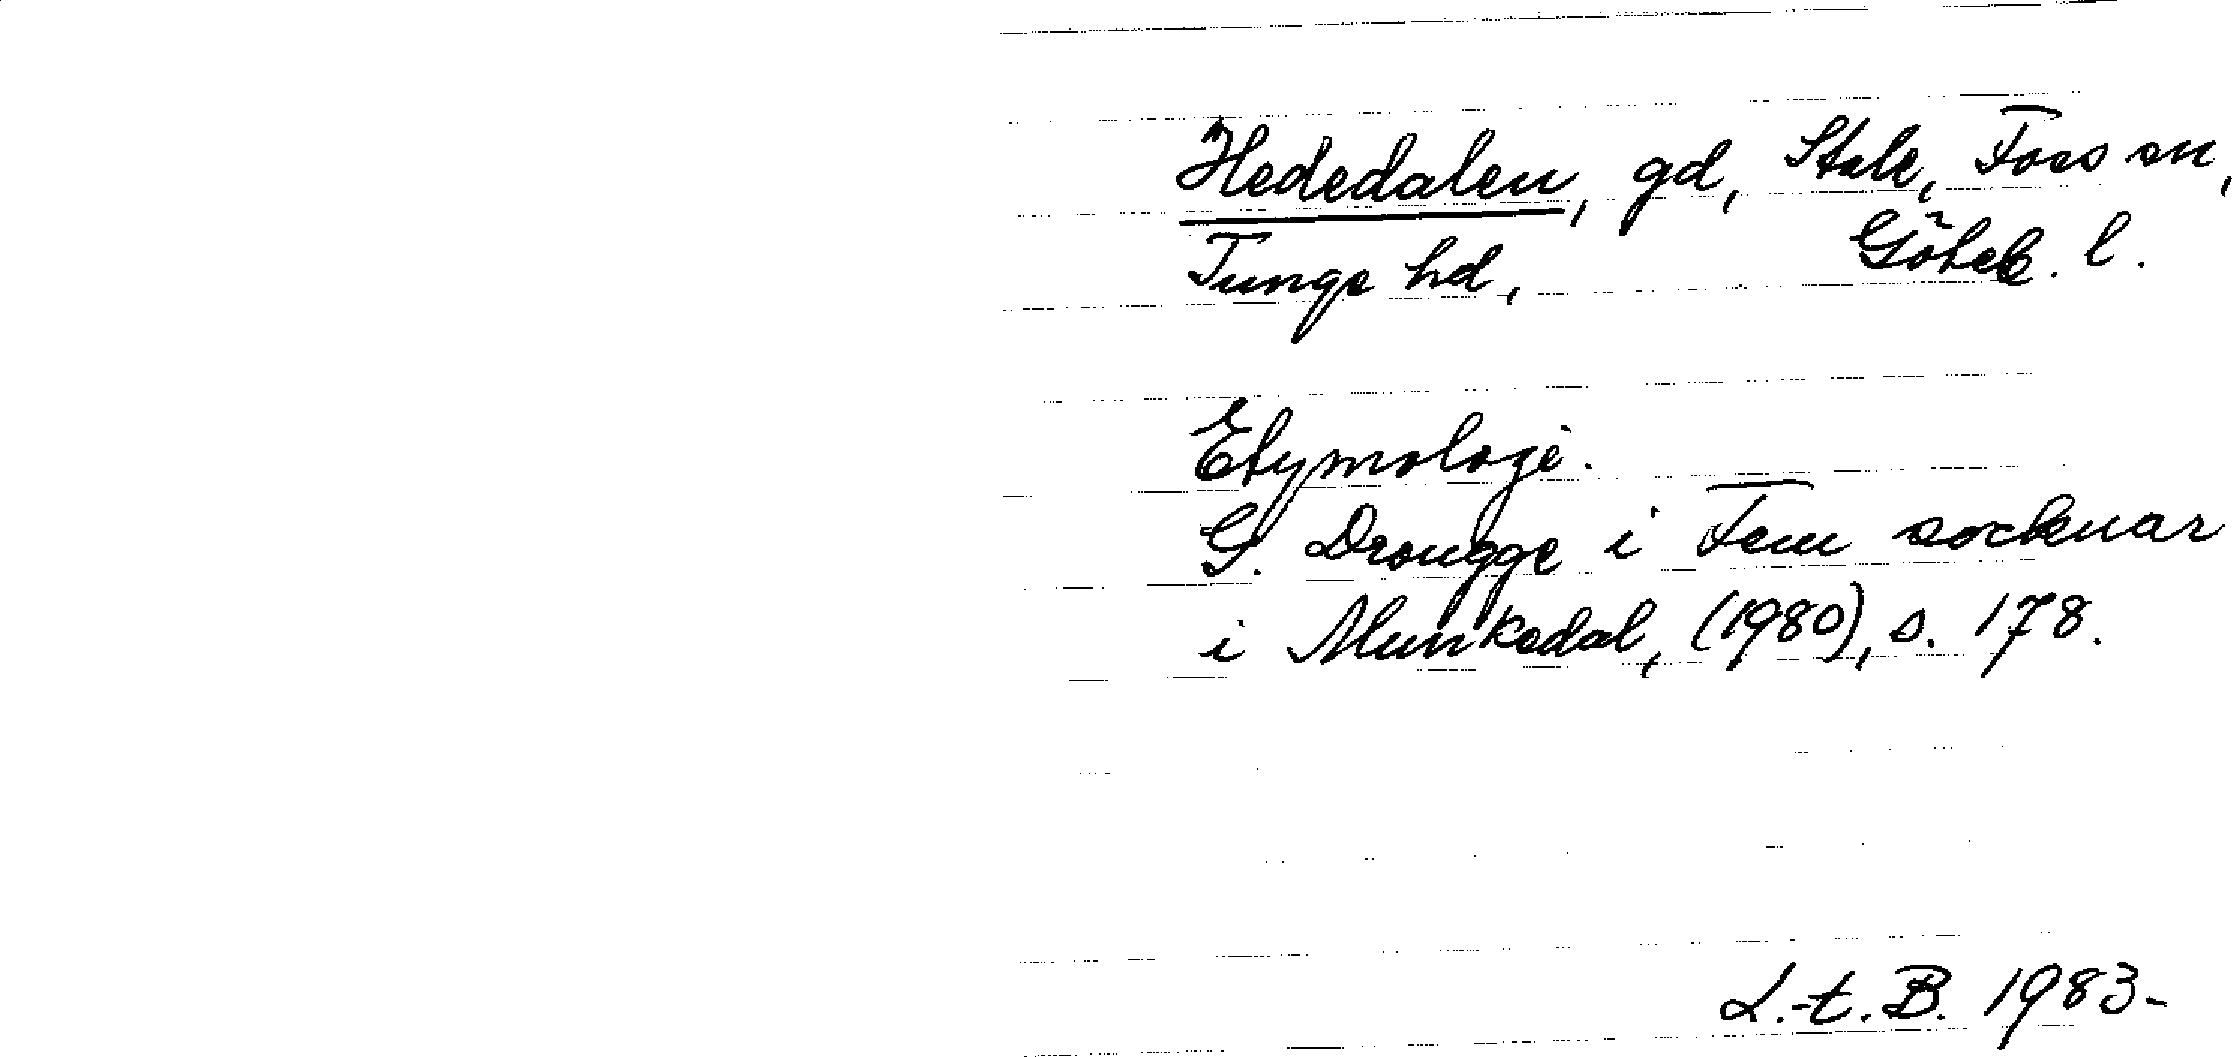 Hededalen, gd, Stale, Foss sn,
Tunge hd, Göteb. l.
Etymologi.
G. Drougge i Fem socknar
i Munkedal, (1980), s. 178.
L.-t. B. 1983-